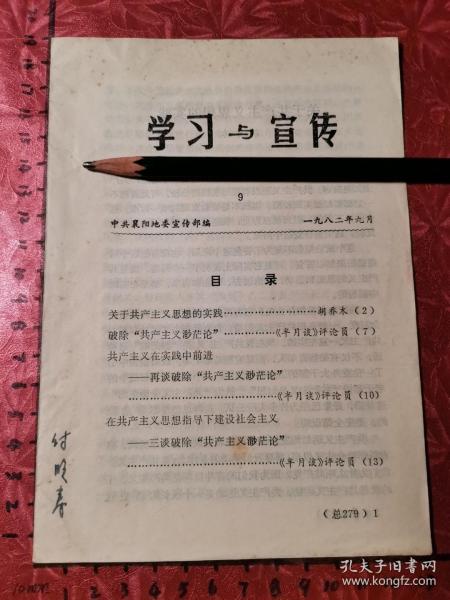 学习与宣传
9
中共襄阳地委宣传部编 一九八二年九月
目 录
关于共产主义思想的实践……………………胡乔木（2）
破除“共产主义渺茫论”……………《半月谈》评论员（7）
共产主义在实践中前进
——再谈破除“共产主义渺茫论”
……………………………………《半月谈》评论员（10）
在共产主义思想指导下建设社会主义
——三谈破除“共产主义渺茫论”
……………………………………《半月谈》评论员（13）
（总279）1
孔夫子旧书网
www.kongfz.com